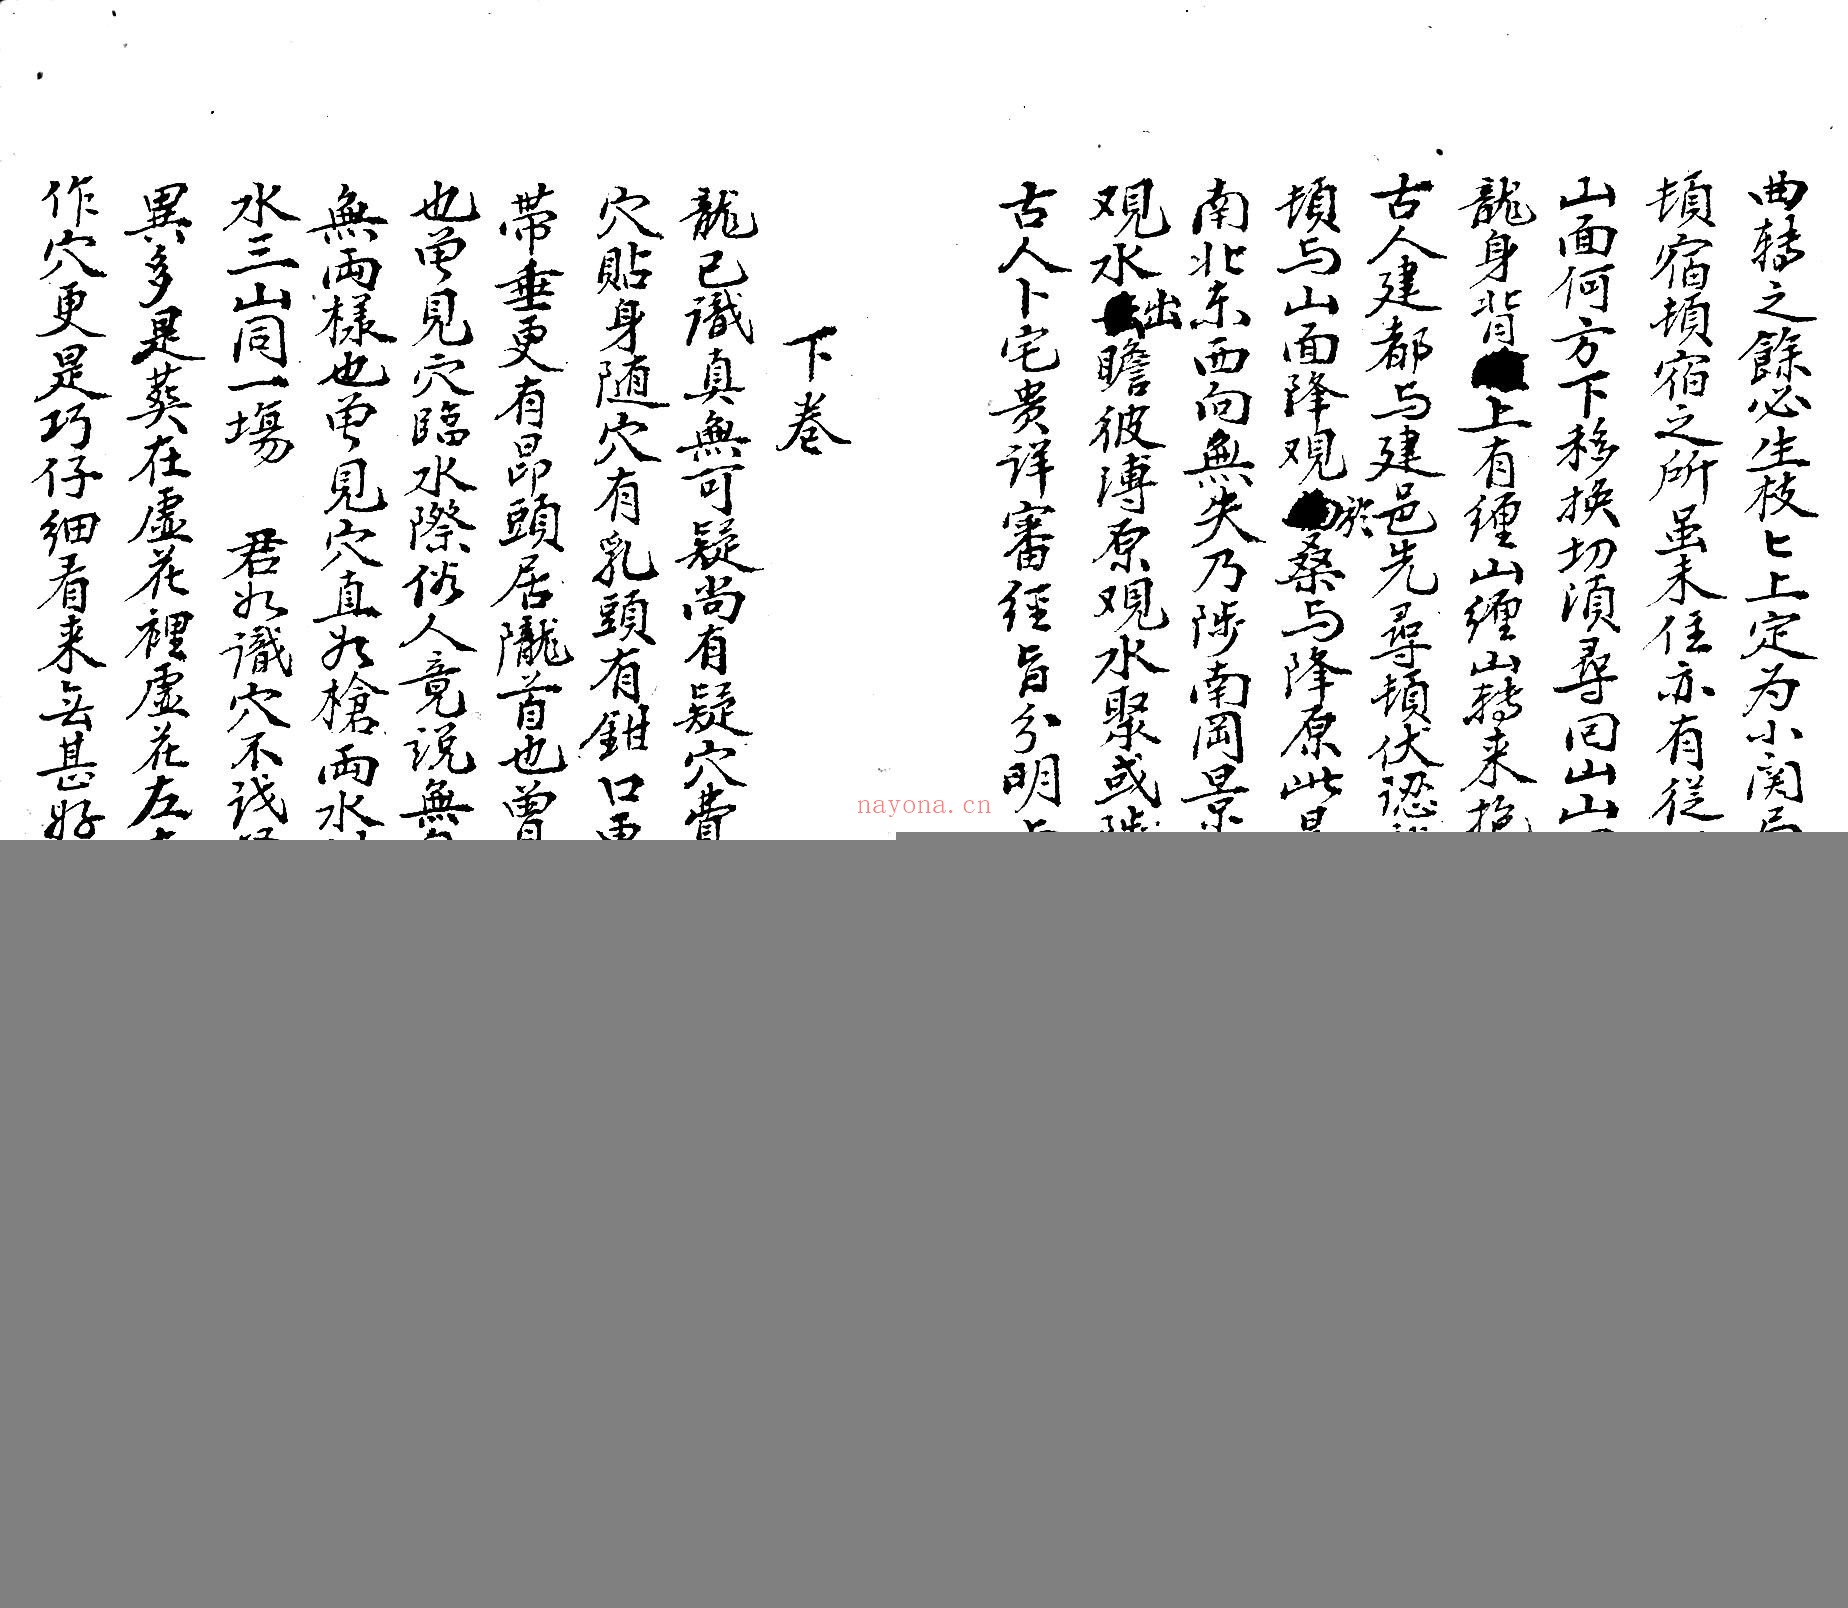 曲轉之餘必生枝匕上定为小関局
頓宿頓宿之所虽未住亦有從
山面何方下移换切湏尋囘山山
龍身背上有缠山缠山轉来抱
古人建都与建邑先尋頓伏認
頓与山面降观於桑与降原此是
南北东西向無失乃陟南岡景
观水出瞻彼溥原观水聚或陟
古人卜宅贵详審经旨分明与
下卷
龍已識真無可疑尚有疑穴費
穴貼身随穴有乳頭有鉗口更
带垂更有昂頭居隴首也曾見
也曽見穴臨水際俗人竟説無
無兩樣也曽見穴直如槍兩水
水三山同一塲 君如識穴不
異多是葵在虚花裡虚花左右
作穴更是巧仔细看来无甚好
nayona.cn